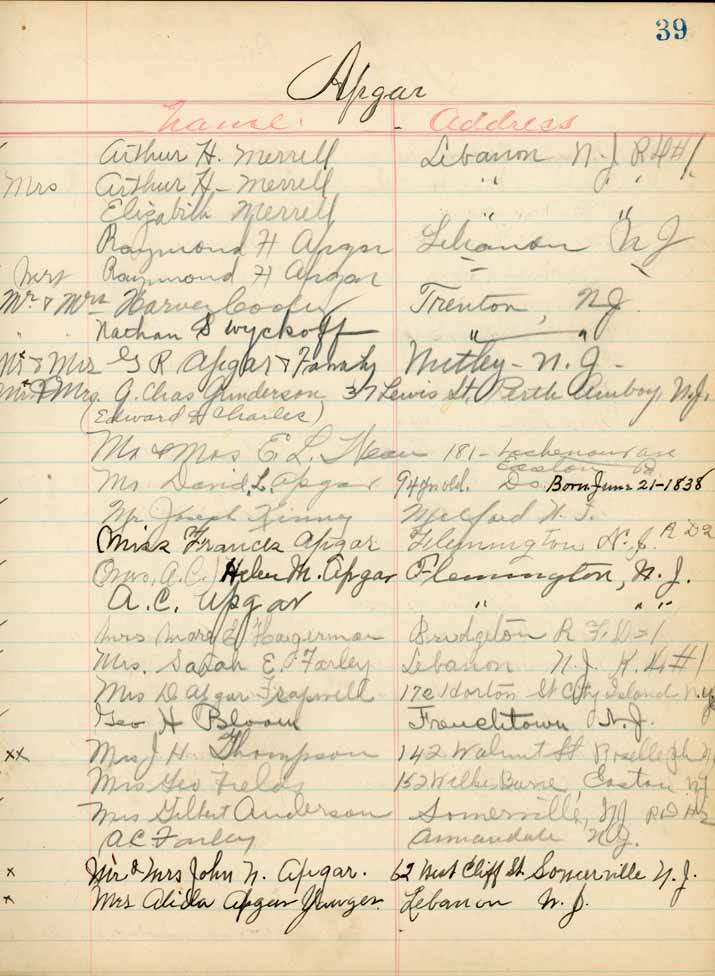 39
Apgar
Name. Address
Arthur H. Merrell Lebanon N.J. R D #1
Mrs Arthur H. Merrell " " "
Elizabeth Merrell " "
Raymond H Apgar Lebanon N J
Mrs Raymond H Apgar " "
Mr & Mrs Harvey Trenton, N.J.
Nathan S Wyckoff " "
Mr & Mrs G R Apgar & Family Nutley - N.J. -
Mr & Mrs. G. Chas Gunderson 37 Lewis St. Perth Amboy N.J.
(Edward & Charles)
Mr & Mrs E. L. 181 - ave
Easton Pa
Mr David L. Apgar 94 yrs old. Do. Born June 21-1838
Mr Joseph Kinney Milford N.J.
Miss Frances Apgar Flemington N.J. R D 2
(Mrs. A.C.) Helen M. Apgar Flemington, N.J.
A.C. Apgar " " "
Mrs Mary E Hagerman Bridgeton R F D #1
Mrs. Sarah E. Farley Lebanon N.J. R. D. #1
Mrs D Apgar Trapwell 170 Horton St City Island N.Y.
Geo H Bloom Frenchtown N.J.
xx Mrs J H Thompson 142 Walnut St Roselle Pk N
Mrs Geo Fields 152 Wilkes Barre, Easton
Mrs Gilbert Anderson Somerville, NJ RD #2
A C Farley Annandale N.J.
x Mr & Mrs John N. Apgar. 62 West Cliff St. Somerville N.J.
x Mrs Alida Apgar Lebanon N.J.